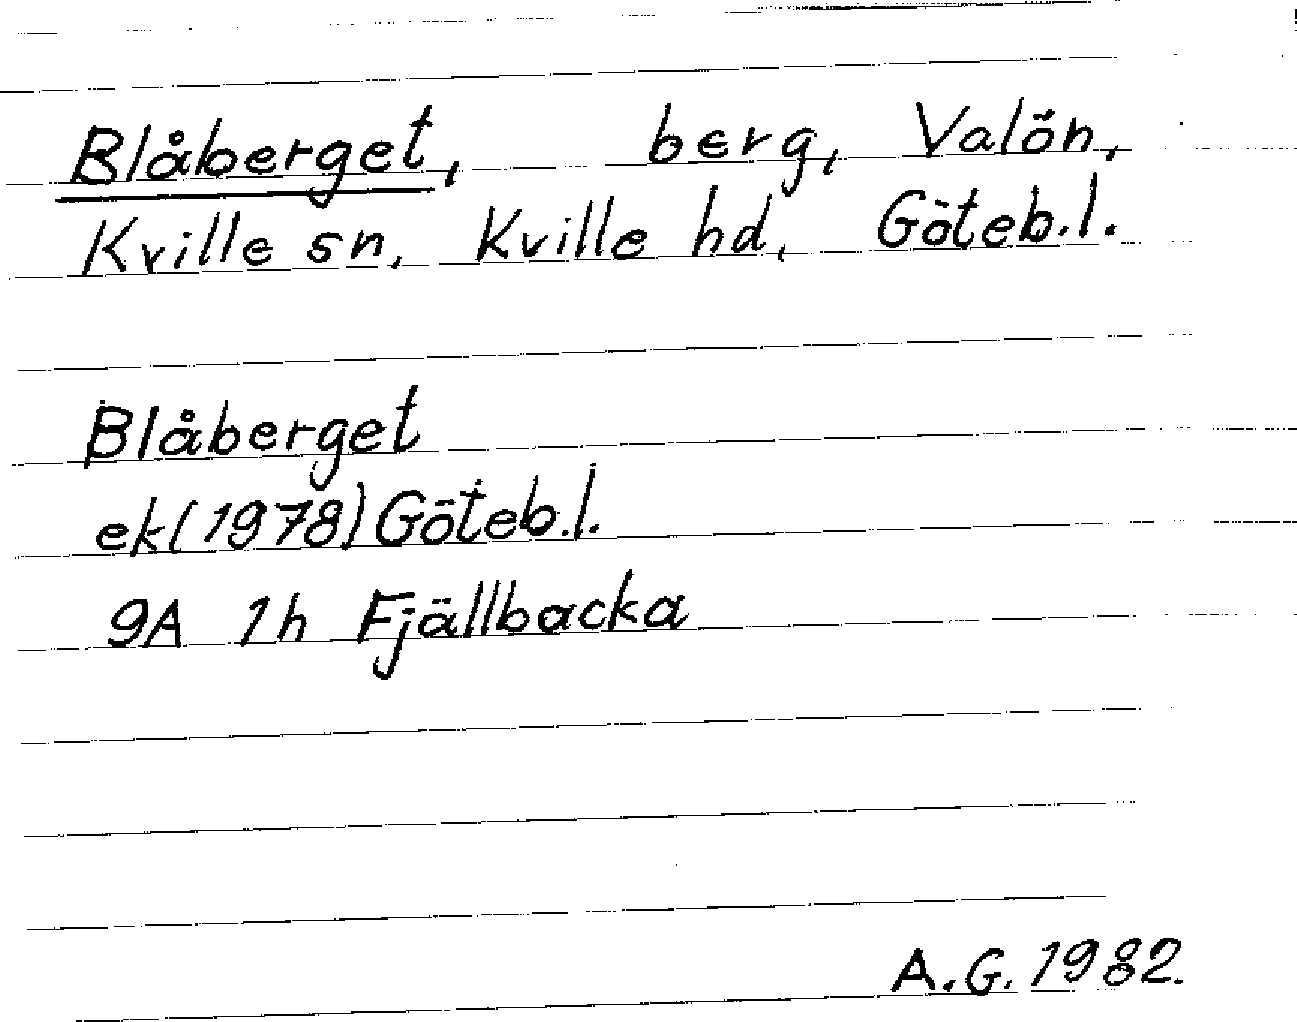 Blåberget, berg, Valön,
Kville sn, Kville hd, Göteb.l.
Blåberget
ek(1978)Göteb.l.
9A 1h Fjällbacka
A.G. 1982.